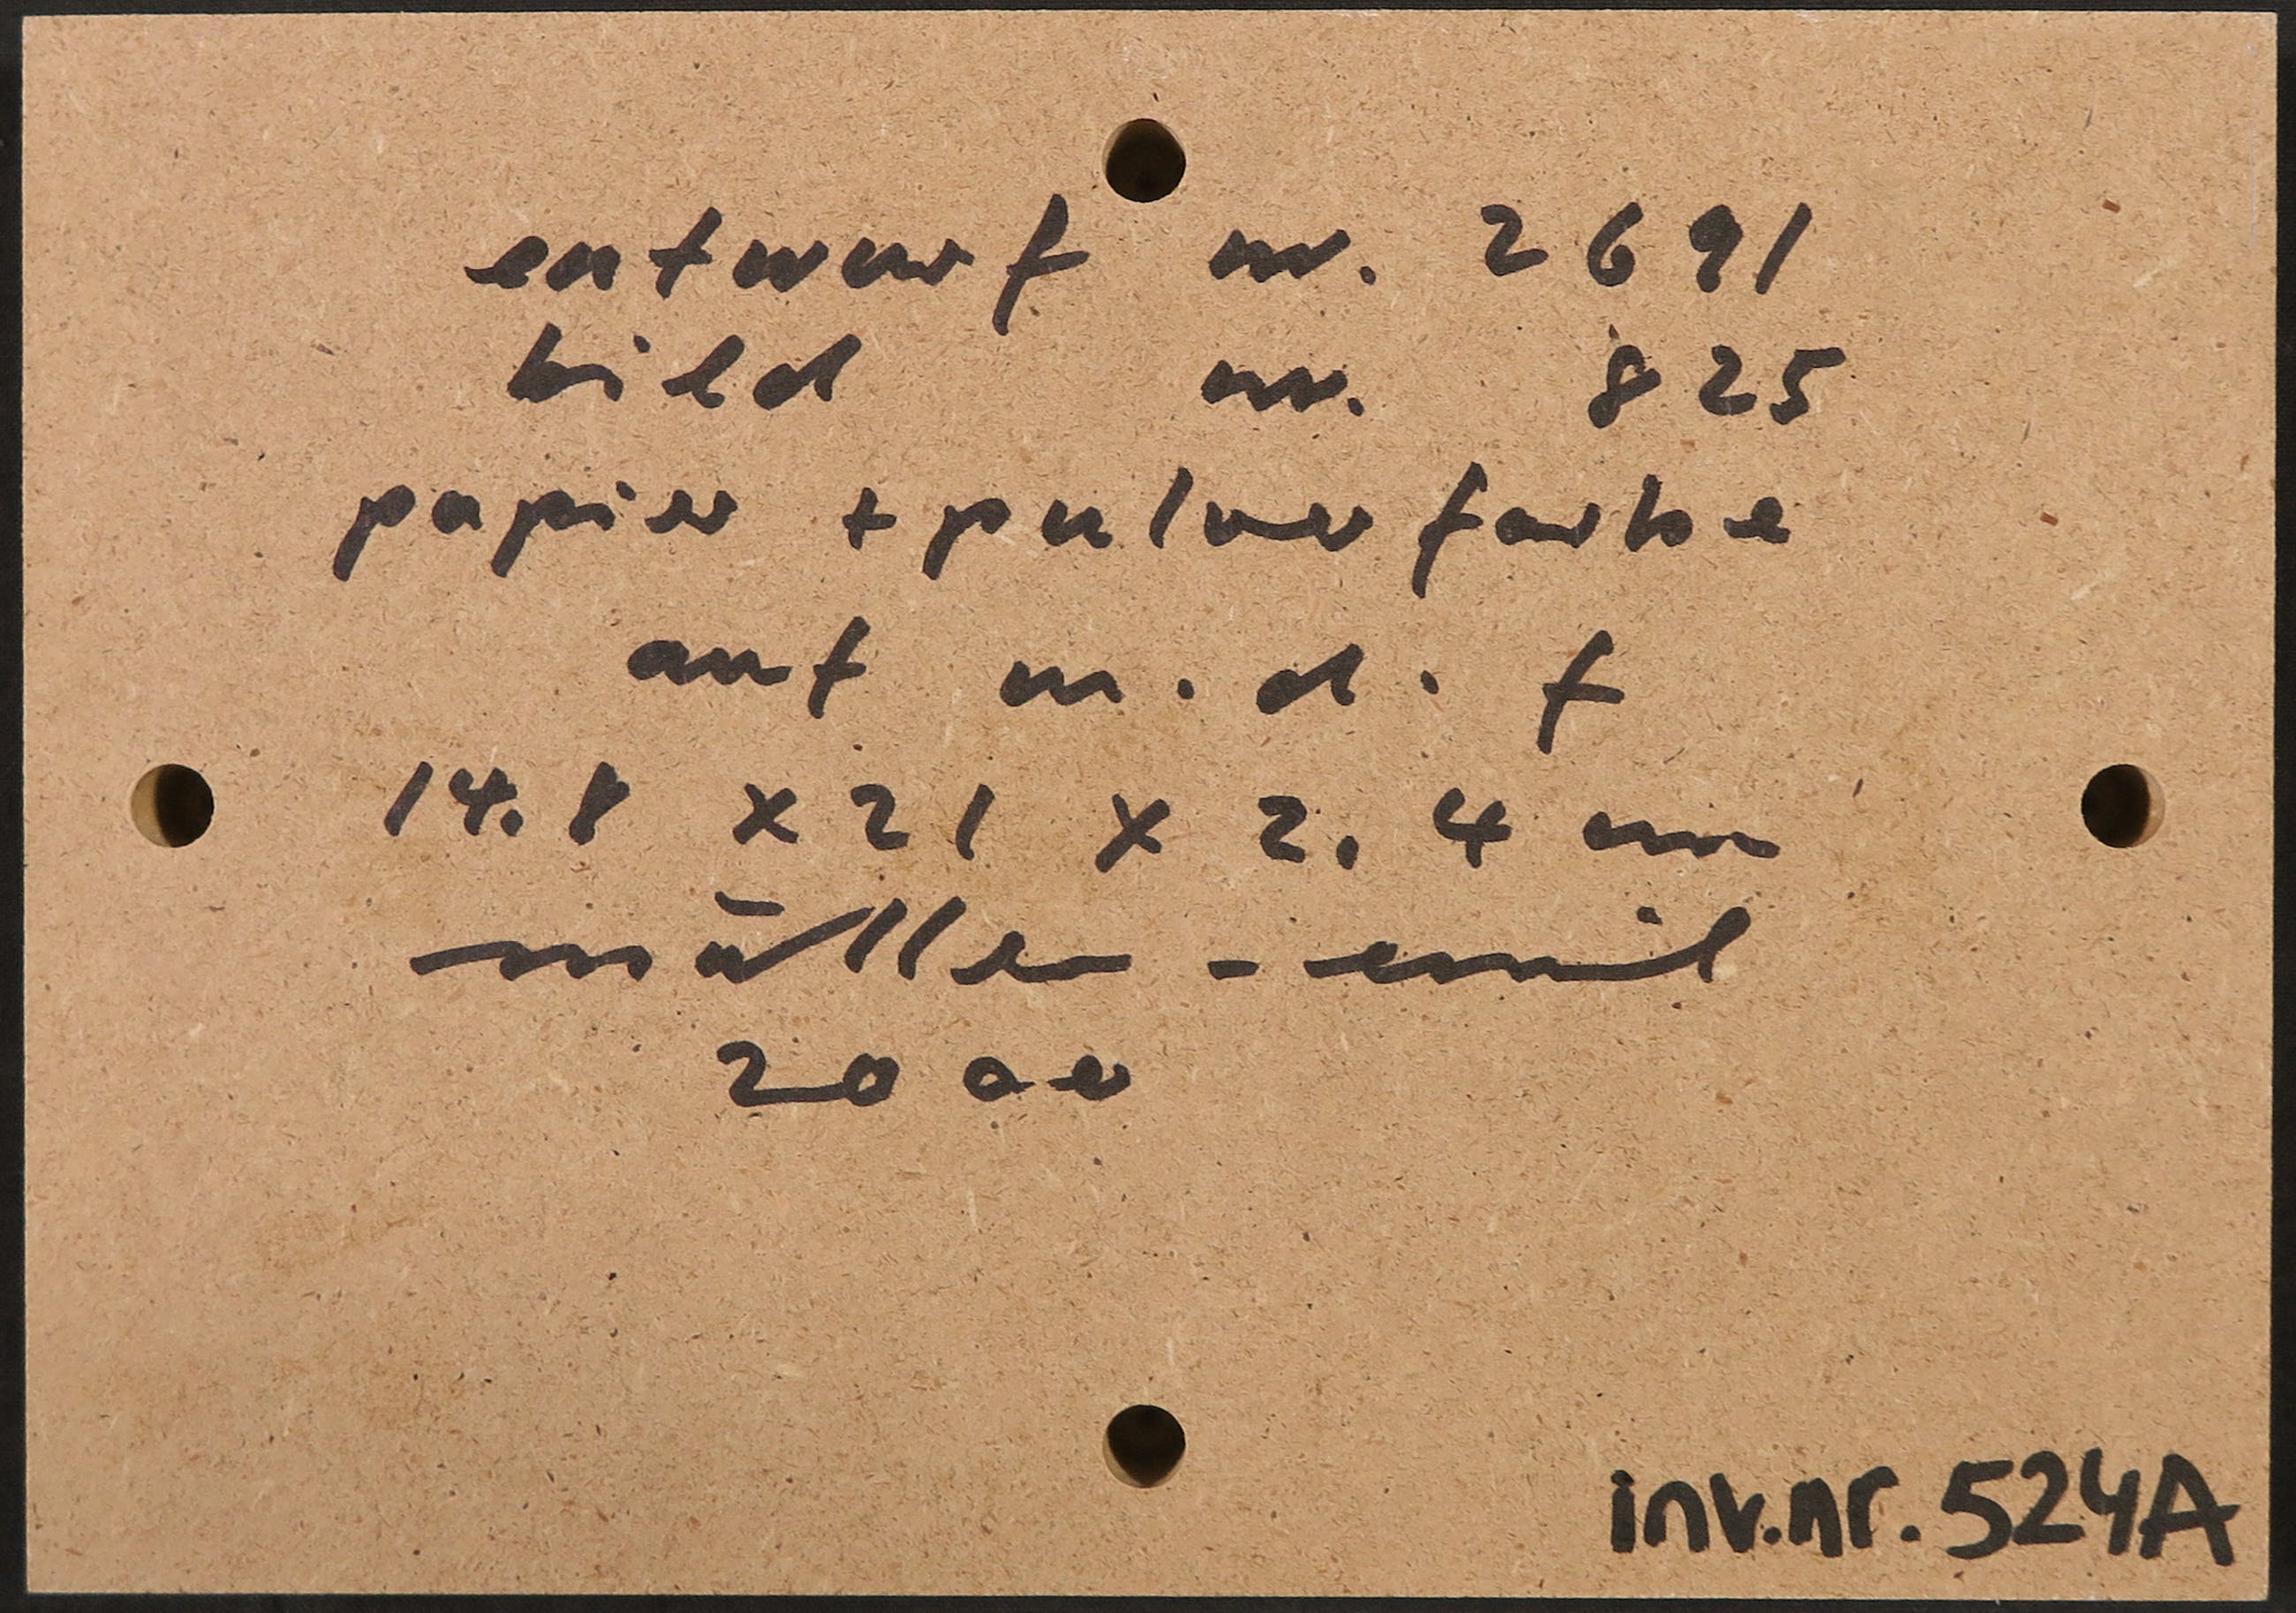 entwurf nr. 2691
bild nr. 825
papier + pulverfarbe
auf m.d.f
14.8 x 21 x 2.4 cm
müller-emil
2000
inv.nr. 524A